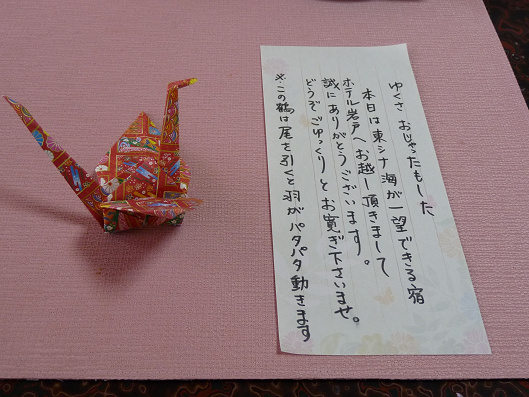 ゆくさ おじゃったもした
本日は東シナ海が一望できる宿
ホテル岩戸へお越し頂きまして
誠にありがとうございます。
どうぞごゆっくりとお寛ぎ下さいませ。
※この鶴は尾を引くと羽がパタパタ動きます